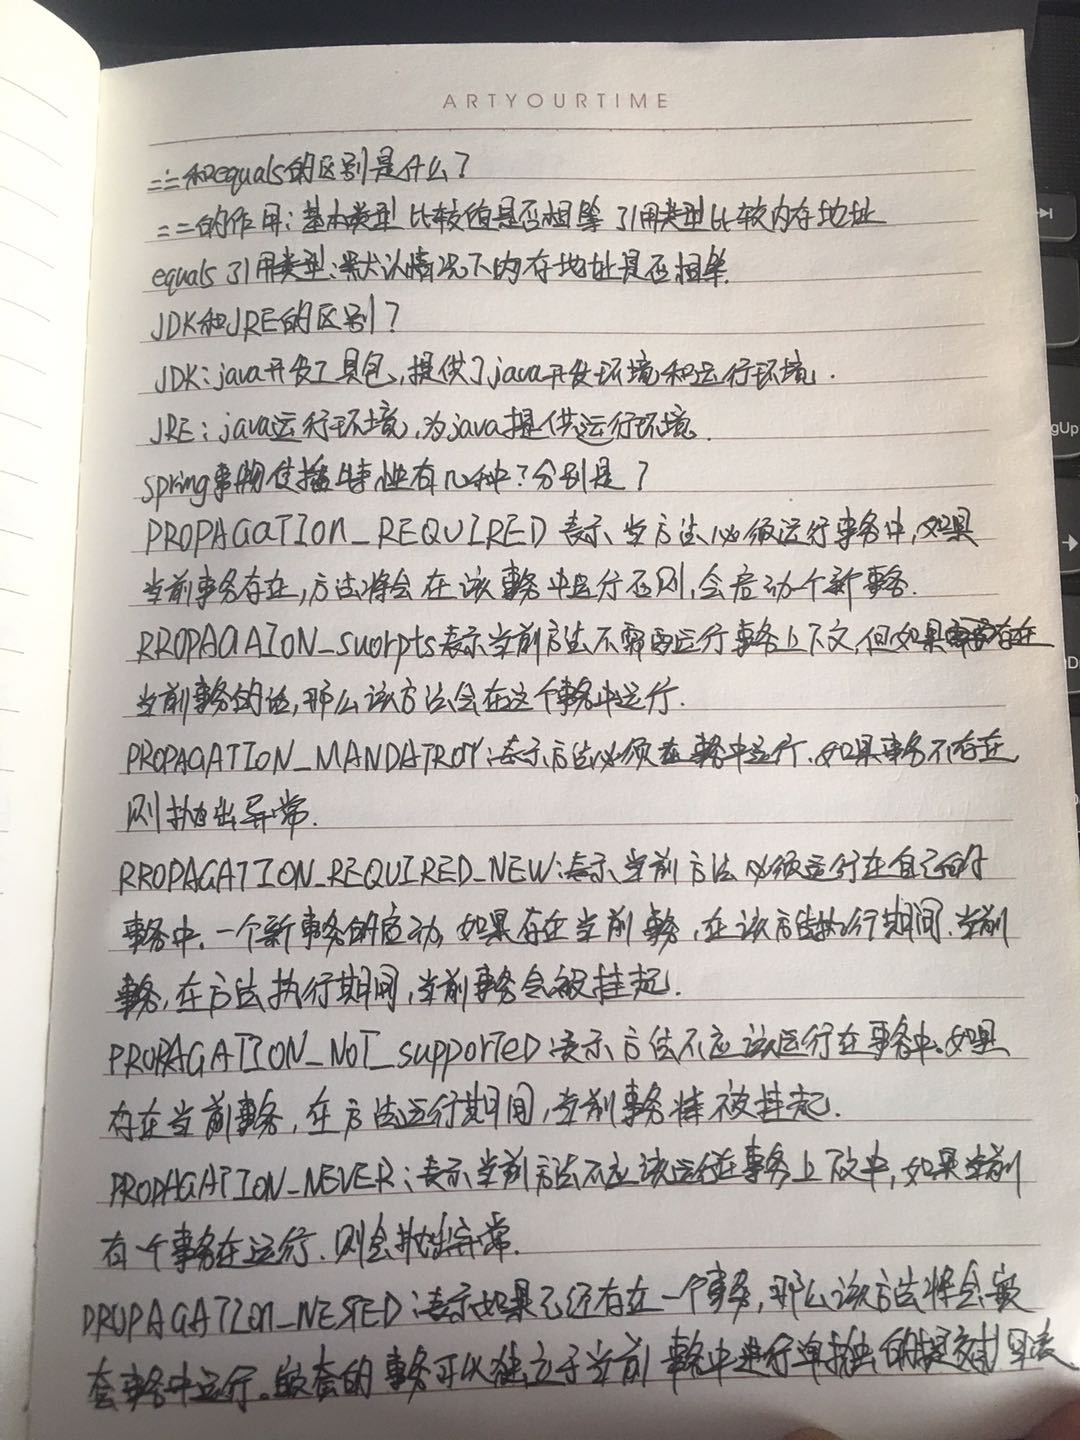 ARTYOURTIME
==和equals的区别是什么?
==的作用:基本类型 比较值是否相等 引用类型比较内存地址
equals 引用类型:默认情况下内存地址是否相等.
JDK和JRE的区别?
JDK:java开发工具包,提供了java开发环境和运行环境.
JRE:java运行环境,为java提供运行环境.
spring事物传播特性有几种?分别是?
PROPAGATION_REQUIRED 表示当方法必须运行事务中,如果
当前事务存在,方法将会在该事务中运行否则,会启动个新事务.
RROPAGAION_suorpts表示当前方法不需要运行事务上下文,但如果存在
当前事务的话,那么该方法会在这个事务中运行.
PROPAGATION_MANDATROY:表示方法必须在事务中运行.如果事务不存在
则抛出异常.
RROPAGATION_REQUIRED_NEW:表示当前方法必须运行在自己的
事务中.一个新事务的启动,如果存在当前事务,在该方法执行期间.当前
事务,在方法执行期间,当前事务会被挂起.
PROPAGATION_NOT_supporTeD:表示方法不应该运行在事务中.如果
存在当前事务,在方法运行期间,当前事务将被挂起.
PROPAGATION_NEVER:表示当前方法不应该运行在事务上下文中,如果当前
有一个事务在运行.则会抛出异常.
PROPAGATION_NESTED:表示如果已经存在一个事务,那么该方法将会嵌
套事务中运行。嵌套的事务可以独立于当前事务中进行单独的提交或回滚